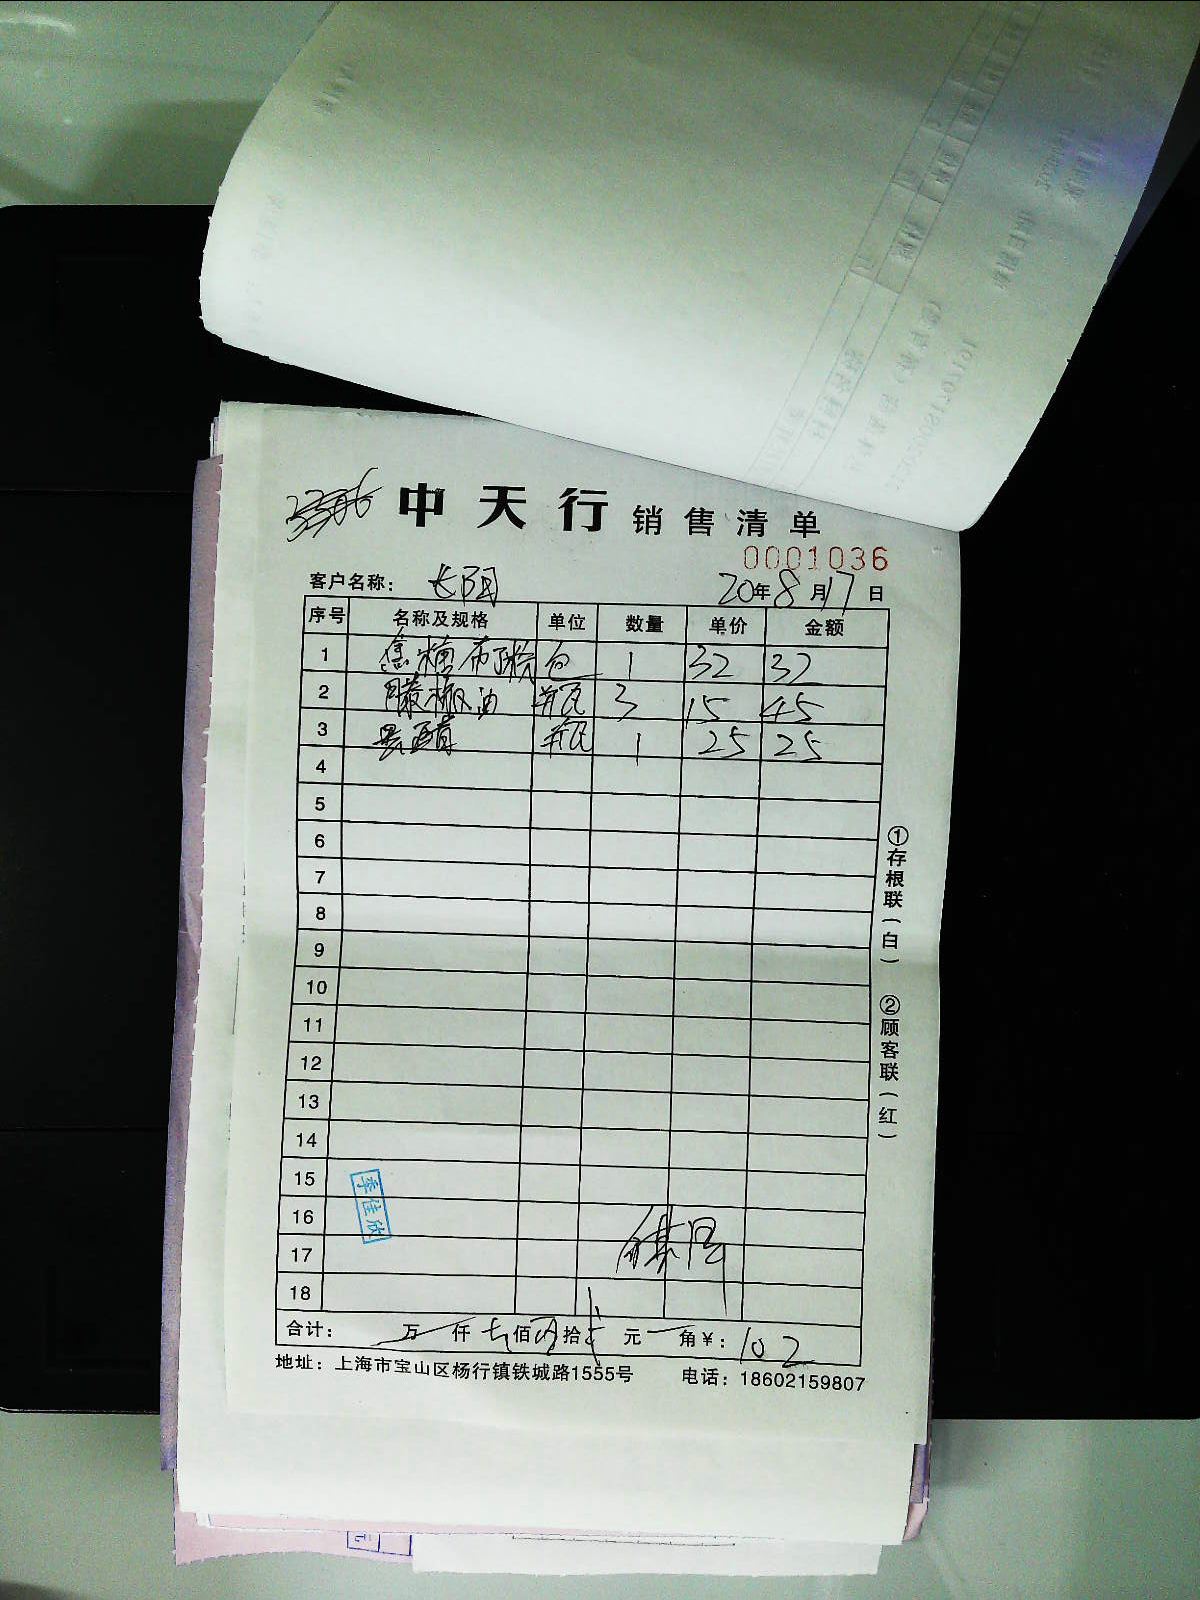 中天行 销售清单
0001036
客户名称： 长阳 20年8月17日
序号 名称及规格 单位 数量 单价 金额
1 焦糖布丁粉 包 1 32 32
2 藤椒油 瓶 3 15 45
3 瓶 1 25 25
4
5
6
7
8
9
10
11
12
13
14
15
16
17
18
季佳欣
合计： 万 仟 佰 拾 元 角 ￥： 102
地址：上海市宝山区杨行镇铁城路1555号 电话：18602159807
①存根联（白） ②顾客联（红）